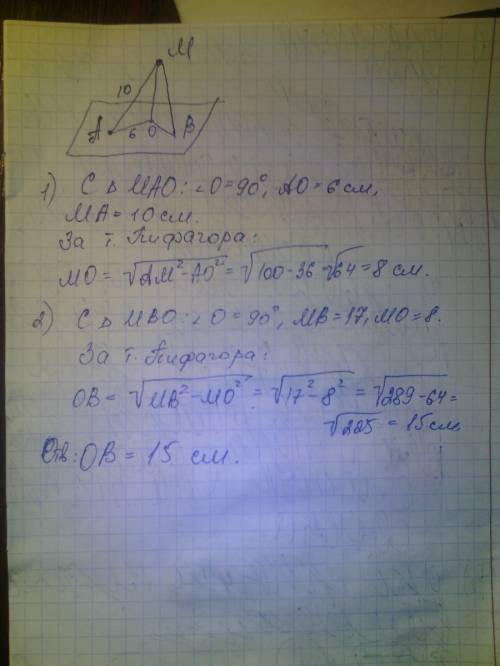 M
10
A 6 O B
1) С Δ MAO: ∠O = 90°, AO = 6 см,
MA = 10 см.
За т. Пифагора:
MO = √AM² - AO² = √100 - 36 √64 = 8 см.
2) С Δ MBO: ∠O = 90°, MB = 17, MO = 8.
За т. Пифагора:
OB = √MB² - MO² = √17² - 8² = √289 - 64 =
√225 = 15 см
Отв: OB = 15 см.